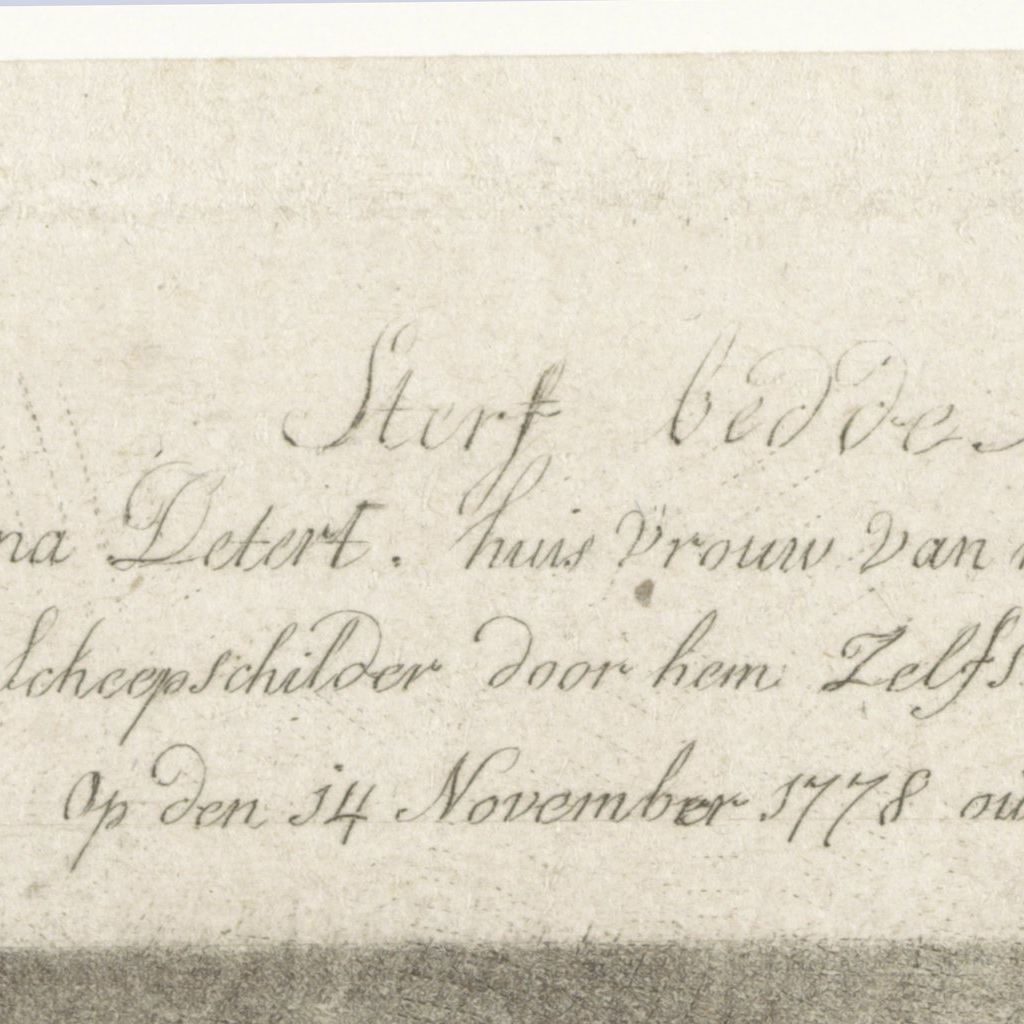 Sterf bedde
na Detert. huis Vrouw Van
Scheepschilder door hem Zelfs
Op den 14 November 1778 ou